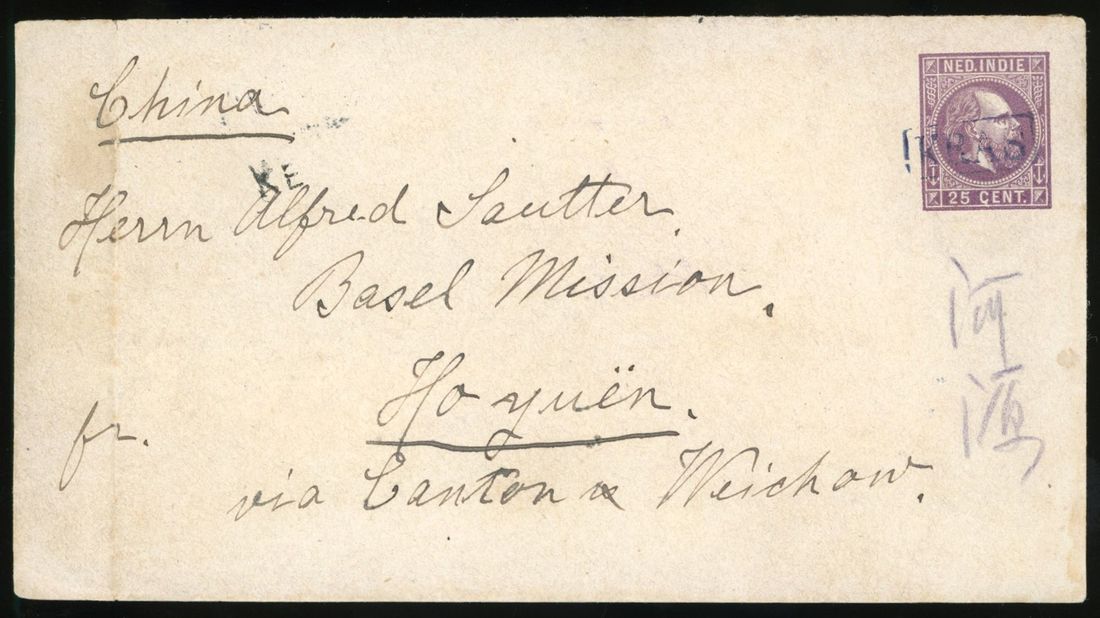 China
NED. INDIE
KRAS
25 CENT.
KE
Herrn Alfred Sautter
Basel Mission.
Ho yuën.
fr.
via Canton & Weichow.
河
源